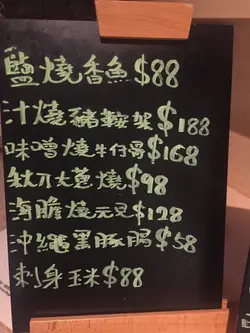 鹽燒香魚$88
汁燒豬鞍架$188
味噌燒牛仔骨$168
秋刀大蔥燒$98
海膽燒元貝$128
沖繩黑豚腸$58
刺身玉米$88